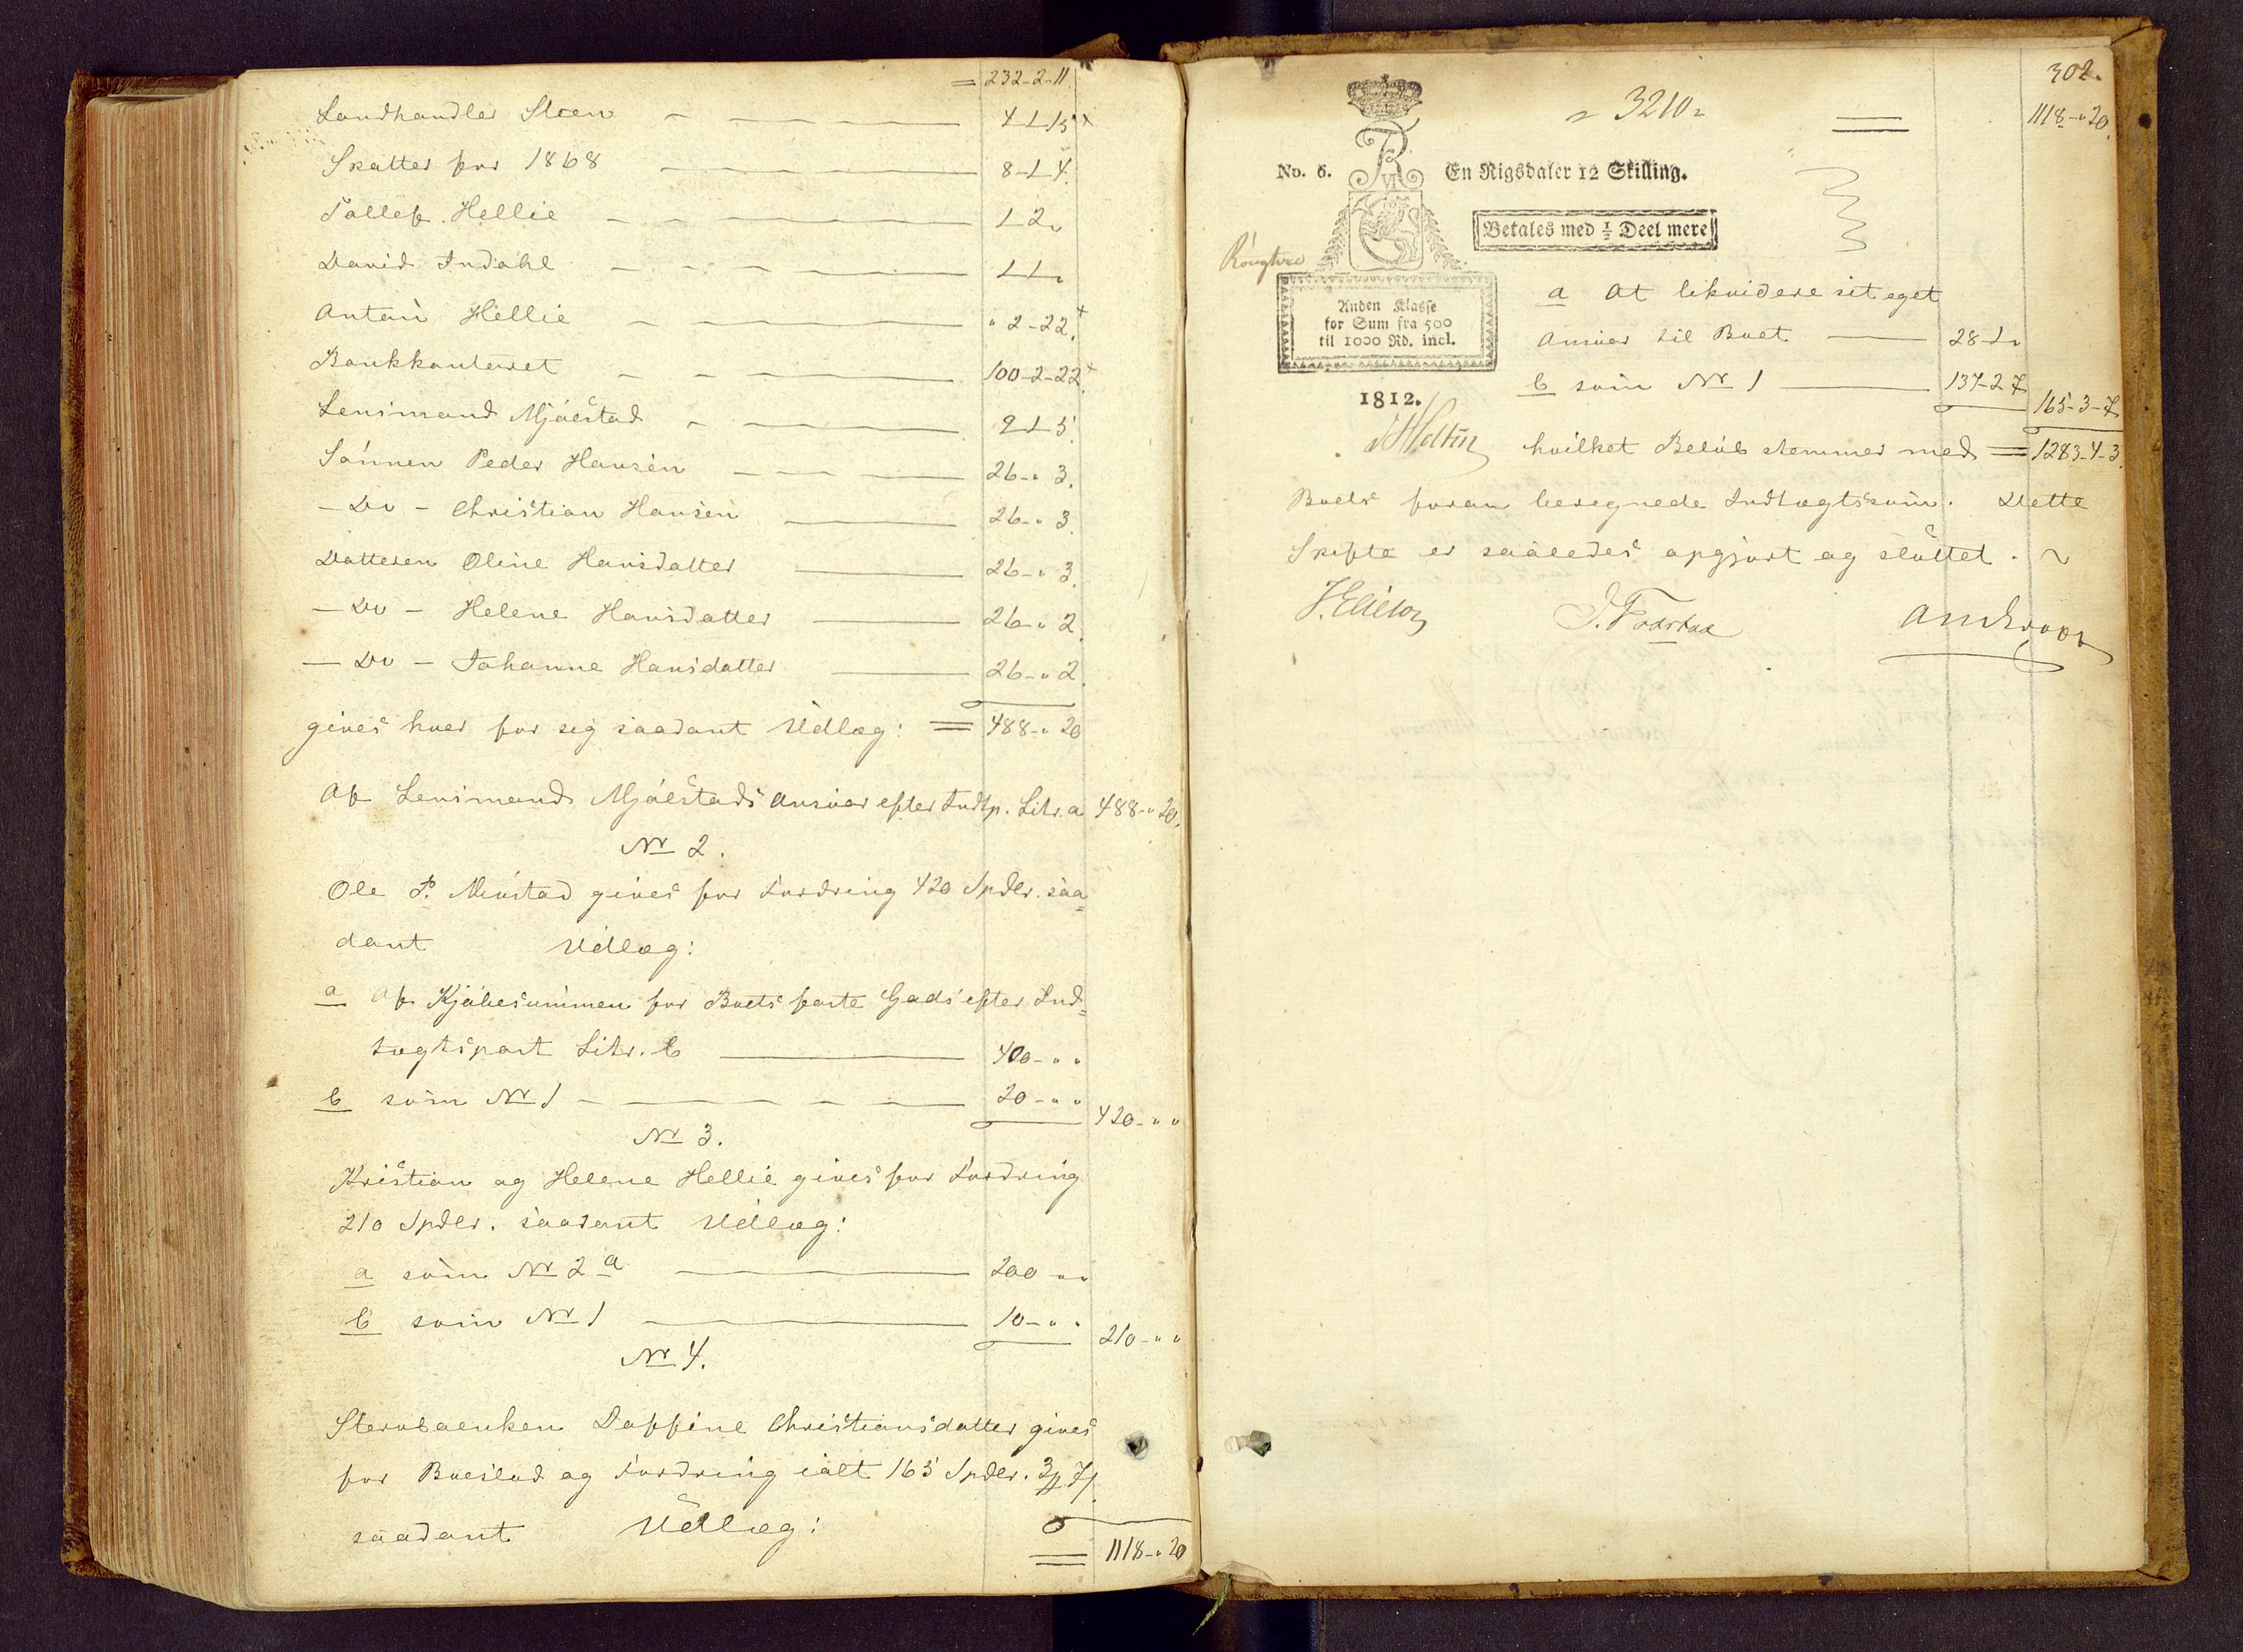 = 232-2-11.
Landhandler Steen — — — — 4-1-15 ×
Skatter for 1868 — — — — 8-1-4.
Tollef Hellie — — — — 1-2 "
David Indahl — — — — 1-1 "
Anton Hellie — — — — " 2-22. ×
Bankkontoret — — — — 100-2-22. ×
Lensmand Mjøestad — — — 2-1-5.
Sønnen Peder Hansen — — — 26-" 3.
— Do — Christian Hansen — 26-" 3
Datteren Oline Hansdatter — 26-" 3.
— Do — Helene Hansdatter — 26-" 2.
— Do — Johanne Hansdatter — 26-" 2.
gives hver for sig saadant Udlæg: = 488-" 20
Af Lensmand Mjøestads Ansvar efter Indtp. Litr. a 488-" 20.
No 2.
Ole P. Mustad gives for Fordring 420 Spdlr. saa=
dant Udlæg:
a Af Kjøbesummen for Boets faste Gods efter Ind=
tægtspost Litr. b — 400-" "
b som No 1 — — — — 20-" "
420-" "
No 3.
Kristian og Helene Hellie gives for Fordring
210 Spdlr. saadant Udlæg:
a som No 2 a — 200-" "
b som No 1 — 10-" "
210-" "
No 4.
Stervboenken Daffine Christiansdatter gives
for Boeslod og Fordring ialt 165 Spdlr. 3 # 7 s.
saadant Udlæg:
= 1118-" 20
302.
" 3210 "
= 1118-" 20.
No. 6. En Rigsdaler 12 Skilling.
Betales med ½ Deel mere
Anden Klasse
for Sum fra 500
til 1000 Rd. incl.
1812.
a At likvidere sit eget
Ansvar til Boet — 28-1-"
b som No 1 — 137-2-7
165-3-7
hvilket Beløb stemmer med = 1283-4-3.
Boets foran beregnede Indtægtssum. Dette
Skifte er saaledes opgjort og sluttet. ~